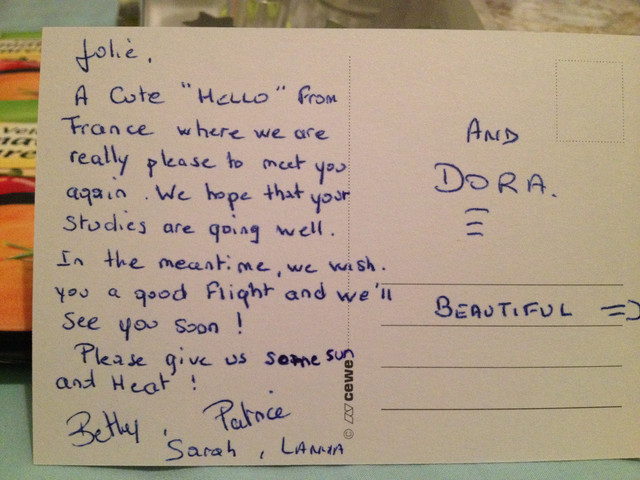 Jolie,
A Cute "HELLO" From
France where we are
really please to meet you
again. We hope that your
Studies are going well.
In the meantime, we wish.
you a good Flight and we'll
See you soon !
Please give us some sun
and Heat !
Betty, Patrice
Sarah,
AND
DORA.
BEAUTIFUL =>
© cewe